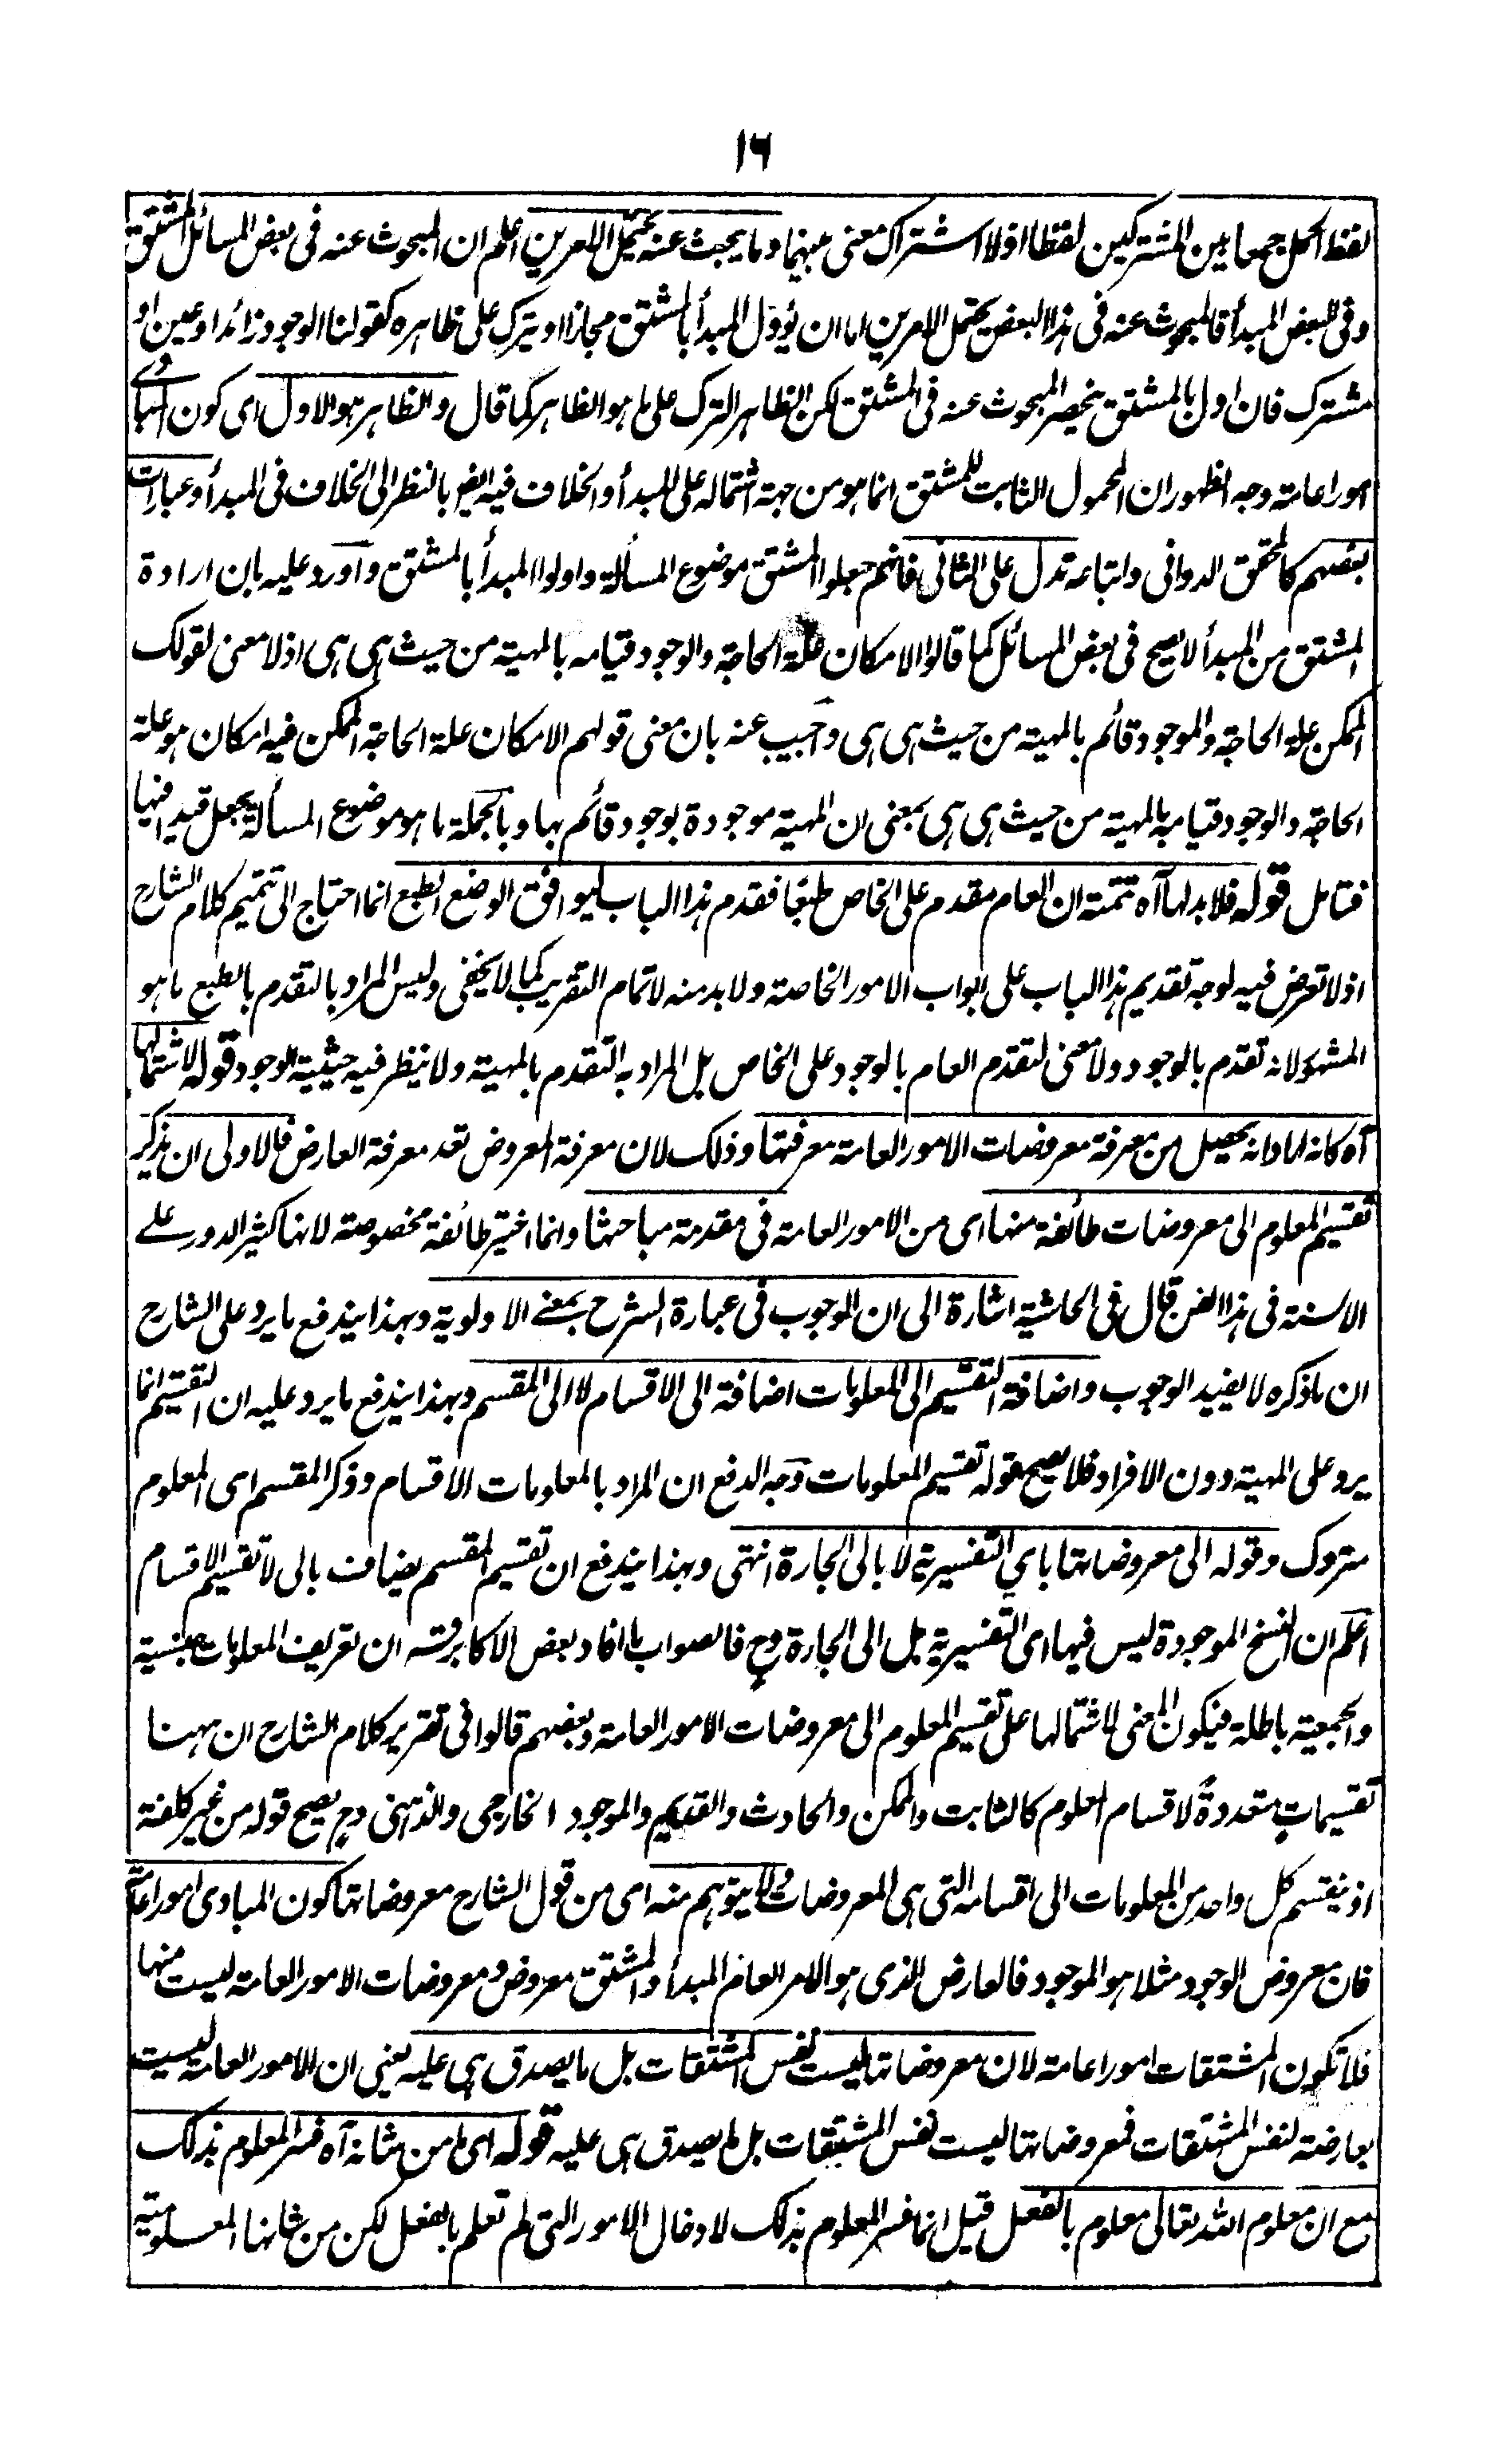 ١٦
لفظ الحمل جمعا بين المشتركين لفظا اذ لا اشتراك معنى بينهما وما يبحث عنه يحتمل الامرين اعلم ان المبحوث عنه فى بعض المسائل المشتق
وفى البعض المبدأ فالمبحوث عنه فى هذا البعض يحتمل الامرين اما ان يؤول المبدأ بالمشتق مجازا او يترك على ظاهره كقولنا الوجود زائد او عين او
مشترك فان اول بالمشتق ينحصر المبحوث عنه فى المشتق لكن الظاهر الترك على ما هو الظاهر كما قال والظاهر هو الاول اى كون المبادى
امورا عامة وجه الظهور ان المحمول الثابت للمشتق انما هو من جهة اشتماله على المبدأ والخلاف فيه ايضا بالنظر الى الخلاف فى المبدأ وعبارات
بعضهم كالمحقق الدوانى واتباعه تدل على الثانى فانهم جعلوا المشتق موضوع المسألة واولوا المبدأ بالمشتق واورد عليه بان ارادة
المشتق من المبدأ لا يصح فى بعض المسائل كما قالوا الامكان علة الحاجة والوجود قيامه بالمهية من حيث هى هى اذ لا معنى لقولك
الممكن علة الحاجة والموجود قائم بالمهية من حيث هى هى واجيب عنه بان معنى قولهم الامكان علة الحاجة الممكن فيه امكان هو علة
الحاجة والوجود قيامه بالمهية من حيث هى هى بمعنى ان المهية موجودة بوجود قائم بها وبالجملة ما هو موضوع المسألة يجعل قيدا فيها
فتامل قوله فلا بد لها آه تتمته ان العام مقدم على الخاص طبعا فقدم هذا الباب ليوافق الوضع الطبع انما احتاج الى تتميم كلام الشارح
اذ لا تعرض فيه لوجه تقديم هذا الباب على ابواب الامور الخاصة ولا بد منه لاتمام التقريب كما لا يخفى وليس المراد بالتقدم بالطبع ما هو
المشهور لانه تقدم بالوجود ولا معنى لتقدم العام بالوجود على الخاص بل المراد به التقدم بالمهية ولا ينظر فيه حيثية الوجود قوله لاشتمالها
آه كانه اراد انه يحصل من معرفة معروضات الامور العامة معرفتها وذلك لان معرفة المعروض تعد معرفة العارض فالاولى ان يذكر
تقسيم المعلوم الى معروضات طائفة منها اى من الامور العامة فى مقدمة مباحثها وانما اختير طائفة مخصوصة لانها كثير الدور على
الالسنة فى هذا الفن قال فى الحاشية اشارة الى ان الوجوب فى عبارة الشرح بمعنى الاولوية وبهذا يندفع ما يرد على الشارح
ان ما ذكره لا يفيد الوجوب واضافة التقسيم الى المعلومات اضافة الى الاقسام لا الى المقسم وبهذا يندفع ما يرد عليه ان التقسيم انما
يرد على المهية دون الافراد فلا يصح قوله تقسيم المعلومات وجه الدفع ان المراد بالمعلومات الاقسام وذكر المقسم اى المعلوم
متروك وقوله الى معروضاتها باي التفسيرية لا بالى الجارة انتهى وبهذا يندفع ان تقسيم المقسم يضاف بالى لا تقسيم الاقسام
اعلم ان النسخ الموجودة ليس فيها اى التفسيرية بل الى الجارة وح فالصواب ما افاد بعض الاكابر قسه ان تعريف المعلومات جنسية
والجمعية باطلة فيكون المعنى لاشتمالها على تقسيم المعلوم الى معروضات الامور العامة وبعضهم قالوا فى تقرير كلام الشارح ان ههنا
تقسيماتٍ متعددةً لاقسام المعلوم كالثابت والممكن والحادث والقديم والموجود الخارجى والذهنى وح يصح قوله من غير كلفة
اذ ينقسم كل واحد من المعلومات الى اقسامه التى هى المعروضات ولا يتوهم منه اى من قول الشارح معروضاتها كون المبادى امورا عامة
فان معروض الوجود مثلا هو الموجود فالعارض الذى هو الامر العام المبدأ والمشتق معروض ومعروضات الامور العامة ليست منها
فلا تكون المشتقات امورا عامة لان معروضاتها ليست نفس المشتقات بل ما يصدق هى عليه يعنى ان الامور العامة ليست
بعارضة لنفس المشتقات فمعروضاتها ليست نفس المشتقات بل ما يصدق هى عليه قوله اى ما من شانه آه فسر المعلوم بذلك
مع ان معلوم الله تعالى معلوم بالفعل قيل انما فسر المعلوم بذلك لادخال الامور التى لم تعلم بالفعل لكن من شانها المعلومية